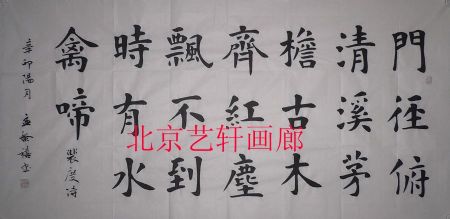 門徑俯
清溪茅
檐古木
齊紅塵
飄不到
時有水
禽啼
裴度詩
辛卯陽月 孟繁禧書
北京艺轩画廊